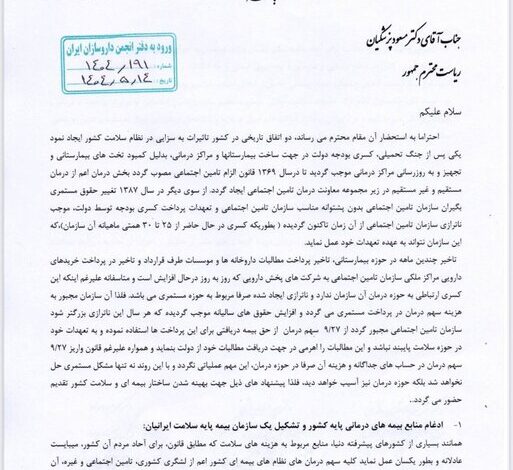 ورود به دفتر انجمن داروسازان ایران
شماره: ۱۴۰۴/۱۹۱
تاریخ: ۱۴۰۴/۵/۱۴
جناب آقای دکتر مسعود پزشکیان
ریاست محترم جمهور
سلام علیکم
احتراما به استحضار آن مقام محترم می رساند، دو اتفاق تاریخی در کشور تاثیرات به سزایی در نظام سلامت کشور ایجاد نمود
یکی پس از جنگ تحمیلی، کسری بودجه دولت در جهت ساخت بیمارستانها و مراکز درمانی، بدلیل کمبود تخت های بیمارستانی و
تجهیز و به روزرسانی مراکز درمانی موجب گردید تا درسال ۱۳۶۹ قانون الزام تامین اجتماعی مصوب گردد بخش درمان اعم از درمان
مستقیم و غیر مستقیم در زیر مجموعه معاونت درمان تامین اجتماعی ایجاد گردد. از سوی دیگر در سال ۱۳۸۷ تغییر حقوق مستمری
بگیران سازمان تامین اجتماعی بدون پشتوانه مناسب سازمان تامین اجتماعی و تعهدات پرداخت کسری بودجه توسط دولت، موجب
ناترازی سازمان تامین اجتماعی از آن زمان تاکنون گردیده (بطوریکه کسری در حال حاضر از ۲۵ تا ۳۰ همتی ماهیانه آن سازمان)،که
این سازمان نتواند به عهده تعهدات خود عمل نماید.
تاخیر چندین ماهه در حوزه بیمارستانی، تاخیر پرداخت مطالبات داروخانه ها و موسسات طرف قرارداد و تاخیر در پرداخت خریدهای
دارویی مراکز ملکی سازمان تامین اجتماعی به شرکت های پخش دارویی که روز به روز درحال افزایش است و متاسفانه علیرغم اینکه این
کسری ارتباطی به حوزه درمان آن سازمان ندارد و ناترازی ایجاد شده صرفا مربوط به حوزه مستمری می باشد. فلذا آن سازمان مجبور به
هزینه سهم درمان در پرداخت مستمری می گردد و افزایش حقوق های سالیانه موجب گردیده که هر سال این ناترازی بزرگتر شود
سازمان تامین اجتماعی مجبور گردد از ۹/۲۷ سهم درمان از حق بیمه دریافتی برای این پرداخت ها استفاده نموده و به تعهدات خود
در حوزه سلامت پایبند نباشد و این مطالبات را اهرمی در جهت دریافت مطالبات خود از دولت بنماید و همواره علیرغم قانون واریز ۹/۲۷
سهم درمان در حساب های جداگانه و هزینه آن صرفا در حوزه درمان، این مهم عملیاتی نگردد و با این روند نه تنها مشکل مستمری حل
نخواهد شد بلکه حوزه درمان نیز آسیب خواهد دید، فلذا پیشنهاد های ذیل جهت بهینه شدن ساختار بیمه ای و سلامت کشور تقدیم
حضور می گردد..
۱- ادغام منابع بیمه های درمانی پایه کشور و تشکیل یک سازمان بیمه پایه سلامت ایرانیان:
همانند بسیاری از کشورهای پیشرفته دنیا، منابع مربوط به هزینه های سلامت که مطابق قانون، برای آحاد مردم آن کشور، میبایست
عادلانه و بطور یکسان عمل نماید کلیه سهم درمان های نظام های بیمه ای کشور اعم از لشگری کشوری، تامین اجتماعی و غیره، آن